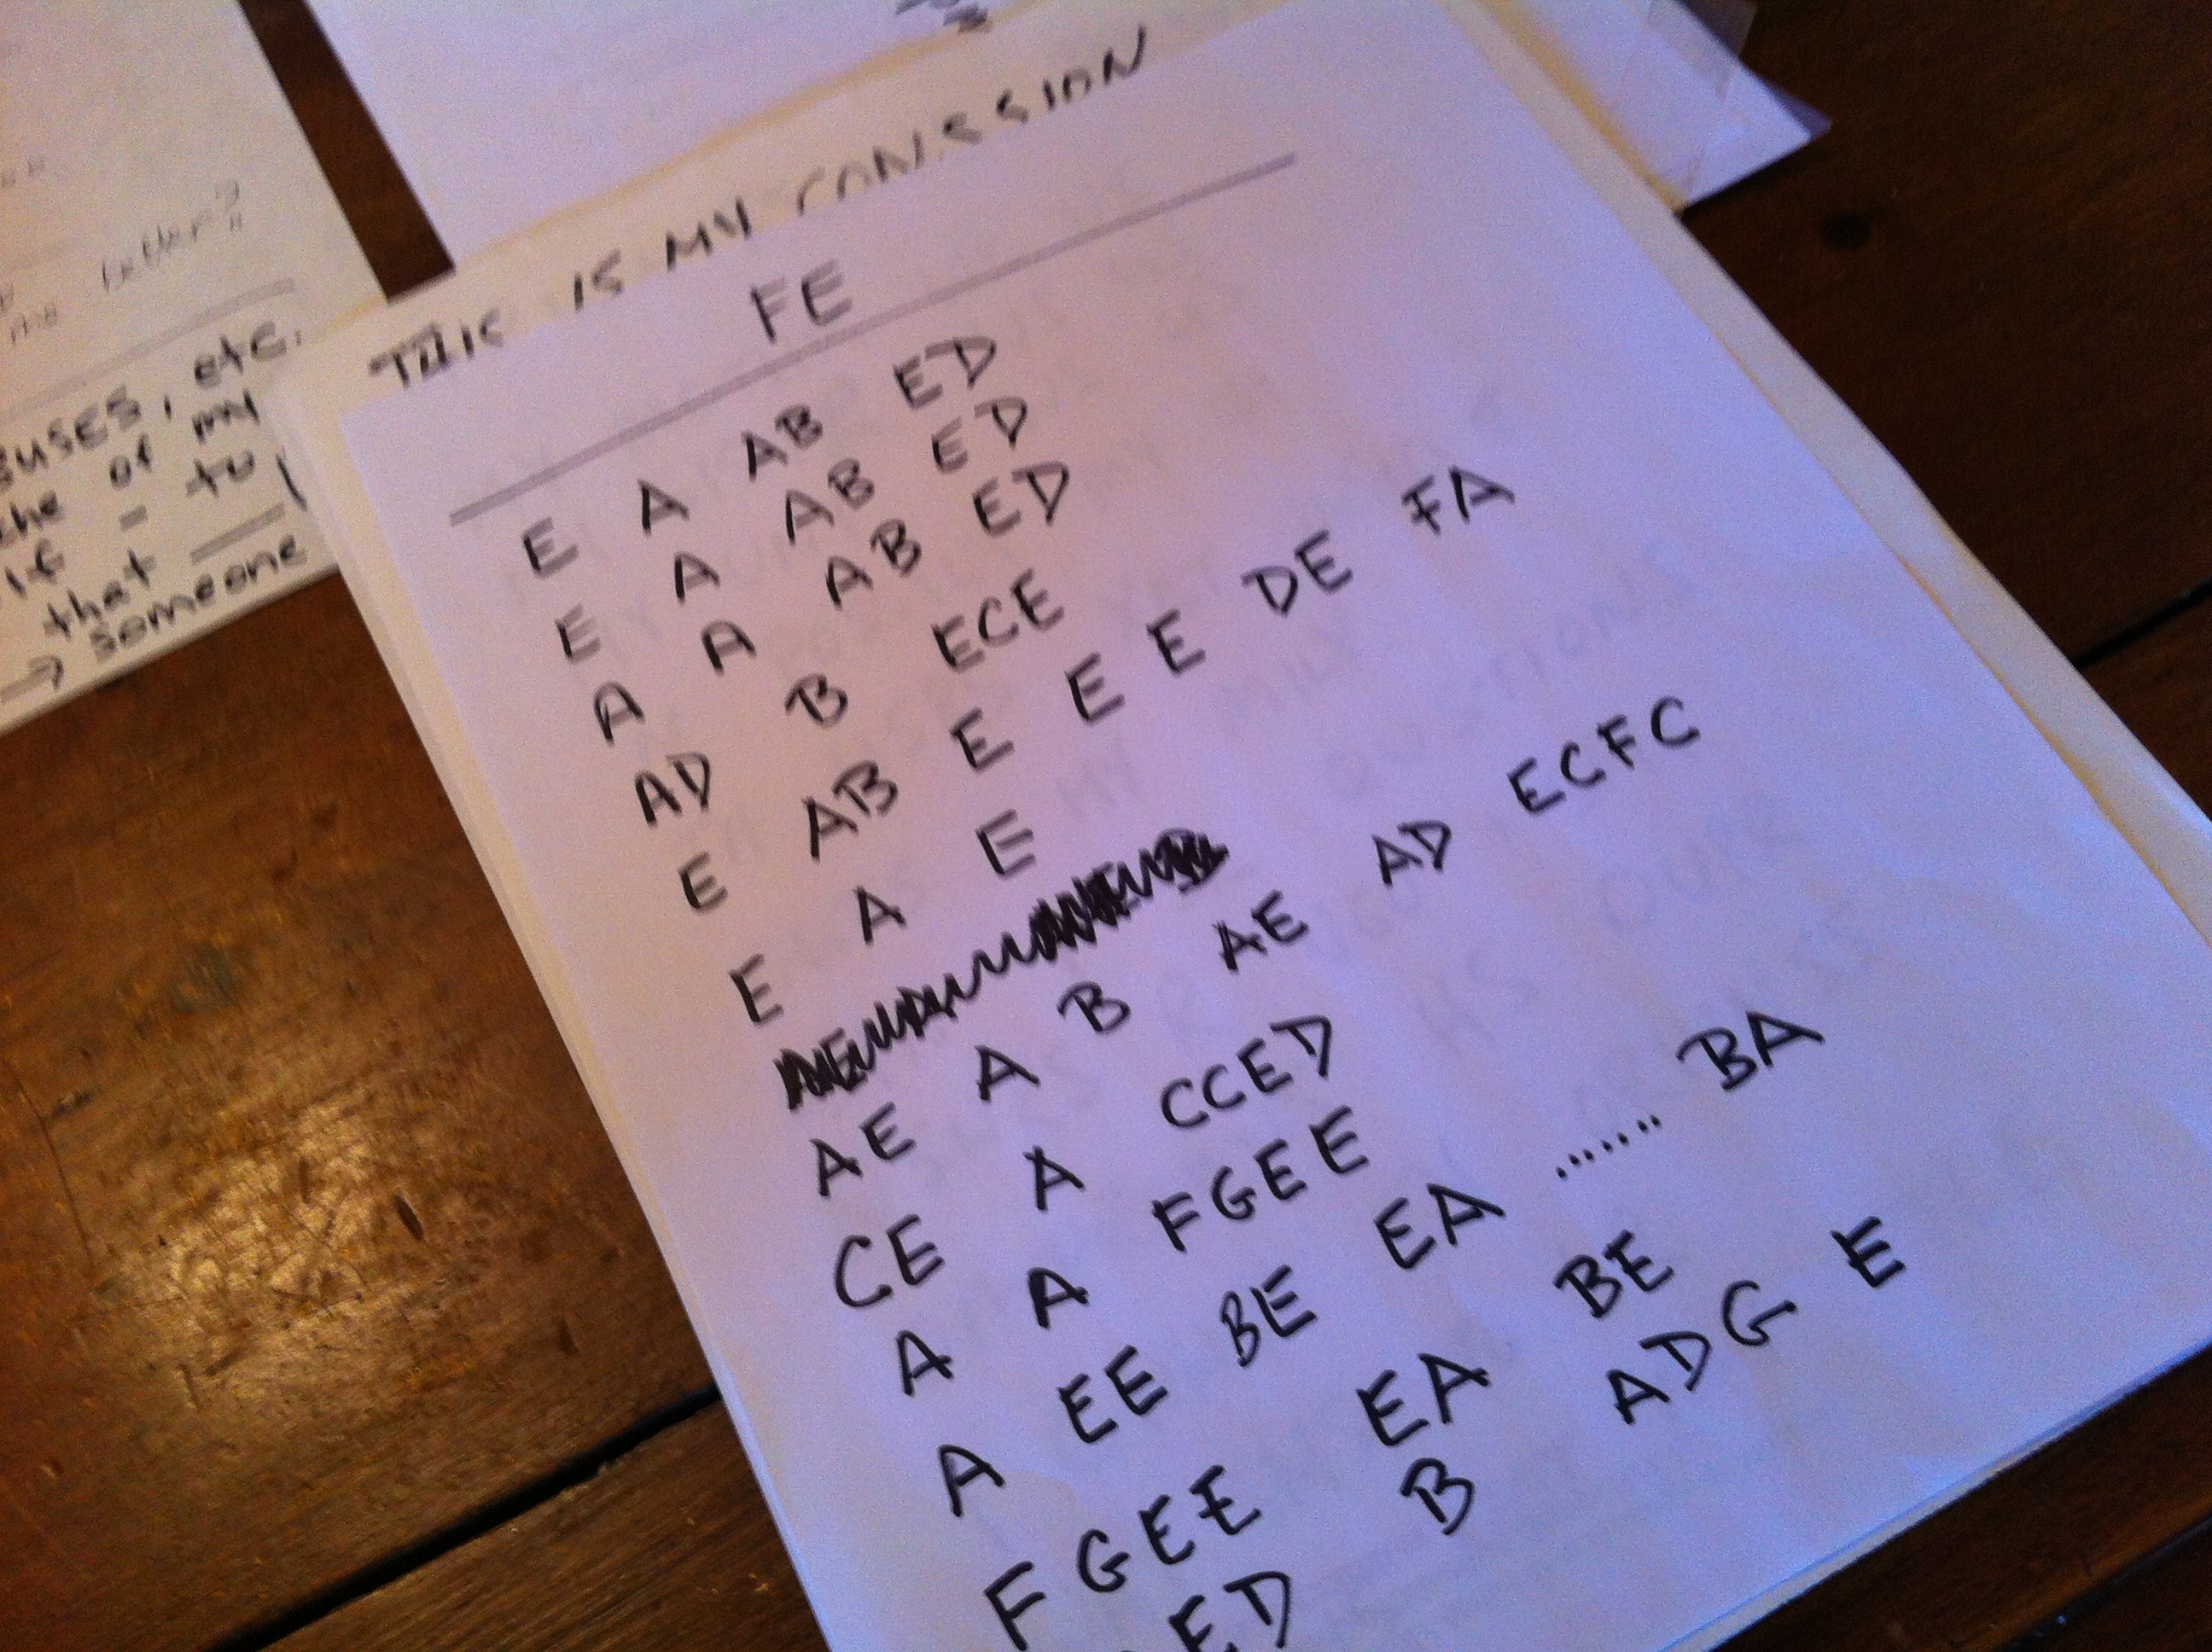 letter?
me
etc.
the of my
if - to
that
→ someone
THIS IS MY CONSSION
FE
E A AB ED
E A AB ED
A A AB ED
AD B ECE
E AB E E E DE FA
E A E
AE A B AE AD ECFC
CE A CCED
A A FGEE
A EE BE EA ....... BA
FGEE EA BE
ED B ADG E